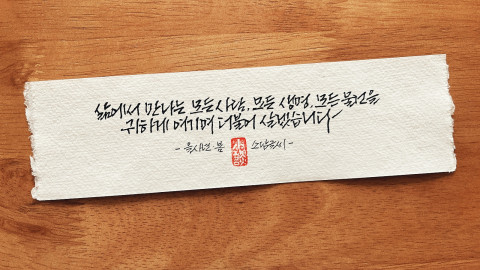 삶에서 만나는 모든 사람, 모든 생명, 모든 물건을
귀하게 여기며 더불어 살겠습니다
- 을사년 봄 소담글씨 -